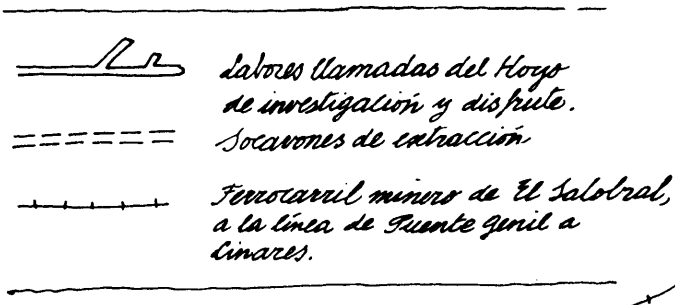 Labores llamadas del Hoyo
de investigación y disfrute.
Socavones de extracción
Ferrocarril minero de El Salobral,
a la línea de Puente Genil a
Linares.